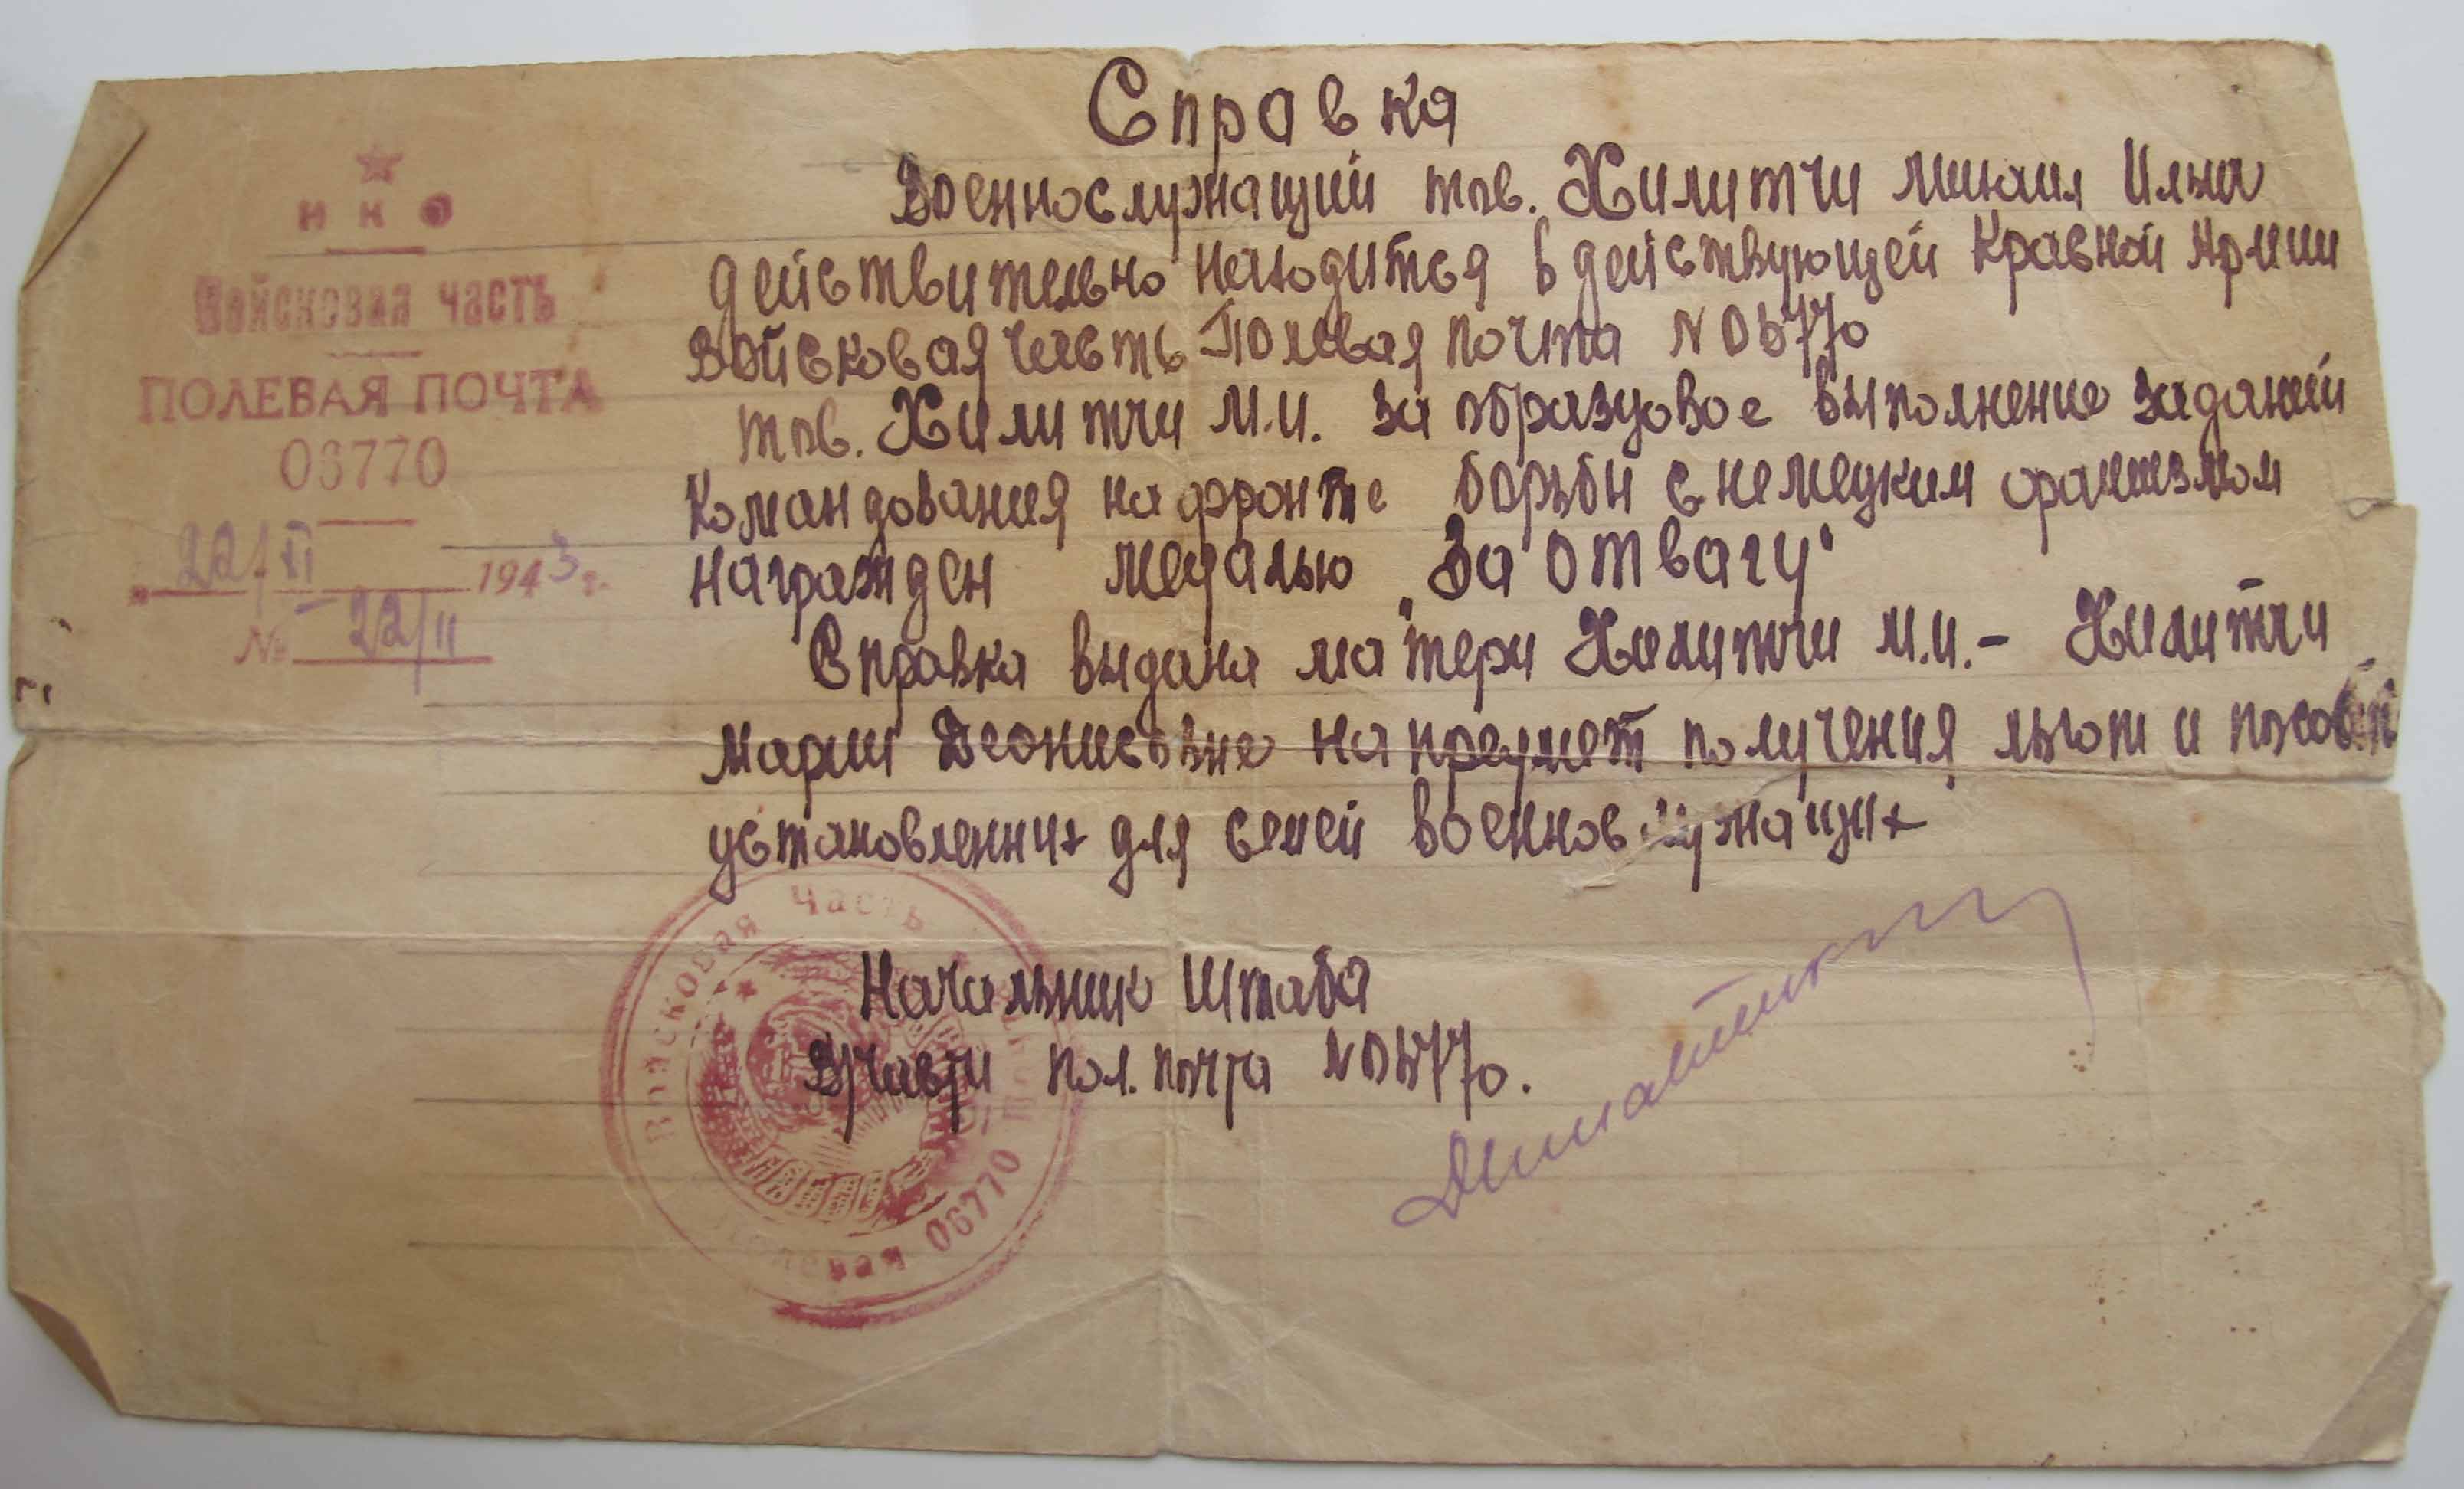 Справка
НКО
Войсковая часть
ПОЛЕВАЯ ПОЧТА
06770
"22/XI 1943 г.
№ 22/11
Военнослужащий тов. Хилитчи Михаил Илья
действительно находится в действующей Красной Армии
Войсковая часть Полевая почта N 06770
тов. Хилитчи М.И. за образцовое выполнение заданий
Командования на фронте борьбы с немецким фашизмом
награжден медалью „За отвагу"
Справка выдана матери Хилитчи М.И. - Хилитчи
Марии Деонисьвне на предмет получения льгот и пособий
установленных для семей военнослужащих
Начальник Штаба
В/части пол. почта N 06770.
Войсковая часть
Полевая почта 06770